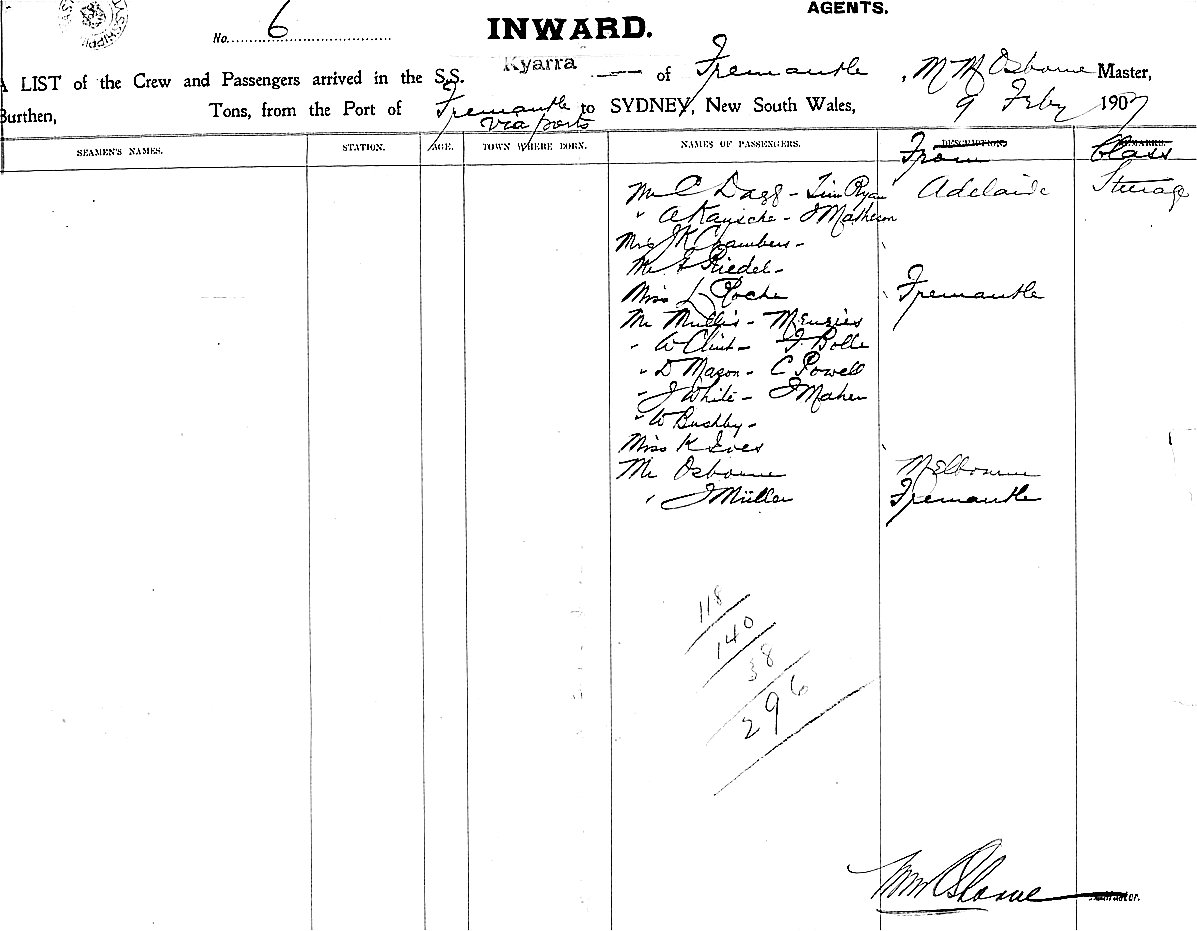 AGENTS.
No. 6
INWARD.
A LIST of the Crew and Passengers arrived in the S.S. Kyarra of Fremantle, M M Osborne Master,
Burthen, Tons, from the Port of Fremantle via ports to SYDNEY, New South Wales, 9 Feby 1907
SEAMEN'S NAMES. STATION. AGE. TOWN WHERE BORN. NAMES OF PASSENGERS. DESCRIPTION From REMARKS. Class
Mr C Dagg - Tim Ryan Adelaide Steerage
" A Kaniche - J Matheson
Mrs J K Chambers -
Mr G Riedel -
Miss L Roche Fremantle
Mr Mullis - Menzies
" W Clint - F. Bolle
" D Mason - C Powell
" J White - J Maher
" W Bushby -
Miss K Eves
Mr Osborne Melbourne
" J Müller Fremantle
118
140
38
296
Osborne Master.